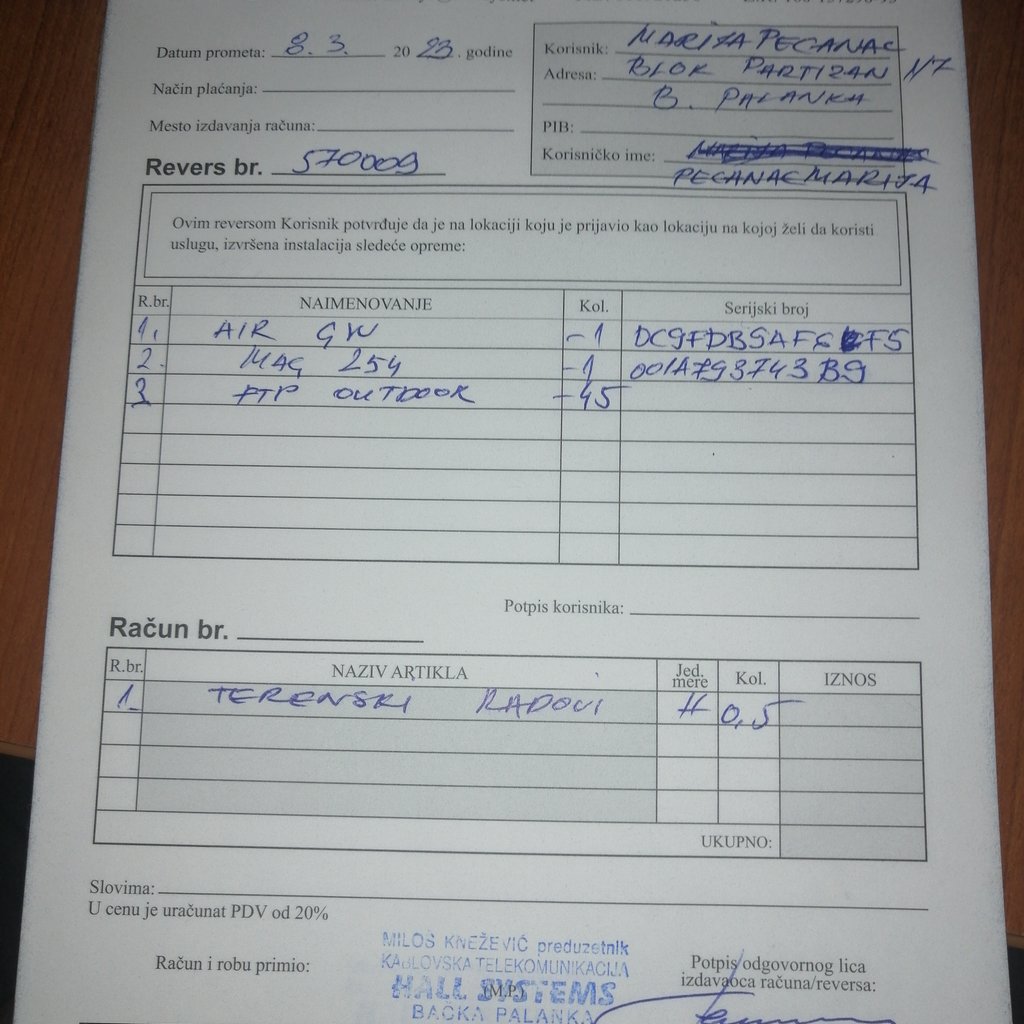 Datum prometa: 8. 3. 2023. godine
Način plaćanja:
Mesto izdavanja računa:
Revers br. 570009
Korisnik: MARIJA PECANAC
Adresa: BLOK PARTIZAN N7
B. PALANKA
PIB:
Korisničko ime:
PECANACMARIJA
Ovim reversom Korisnik potvrđuje da je na lokaciji koju je prijavio kao lokaciju na kojoj želi da koristi
uslugu, izvršena instalacija sledeće opreme:
R.br. NAIMENOVANJE Kol. Serijski broj
1. AIR GW -1
2. MAG 254 -1 001A793743B9
3 FTP OUTDOOR -45
Potpis korisnika:
Račun br.
R.br. NAZIV ARTIKLA Jed. mere Kol. IZNOS
1. TERENSKI RADOVI H 0,5
UKUPNO:
Slovima:
U cenu je uračunat PDV od 20%
Račun i robu primio:
MILOŠ KNEŽEVIĆ preduzetnik
KABLOVSKA TELEKOMUNIKACIJA
HALL SYSTEMS
(M.P.)
BAČKA PALANKA
Potpis odgovornog lica
izdavaoca računa/reversa: